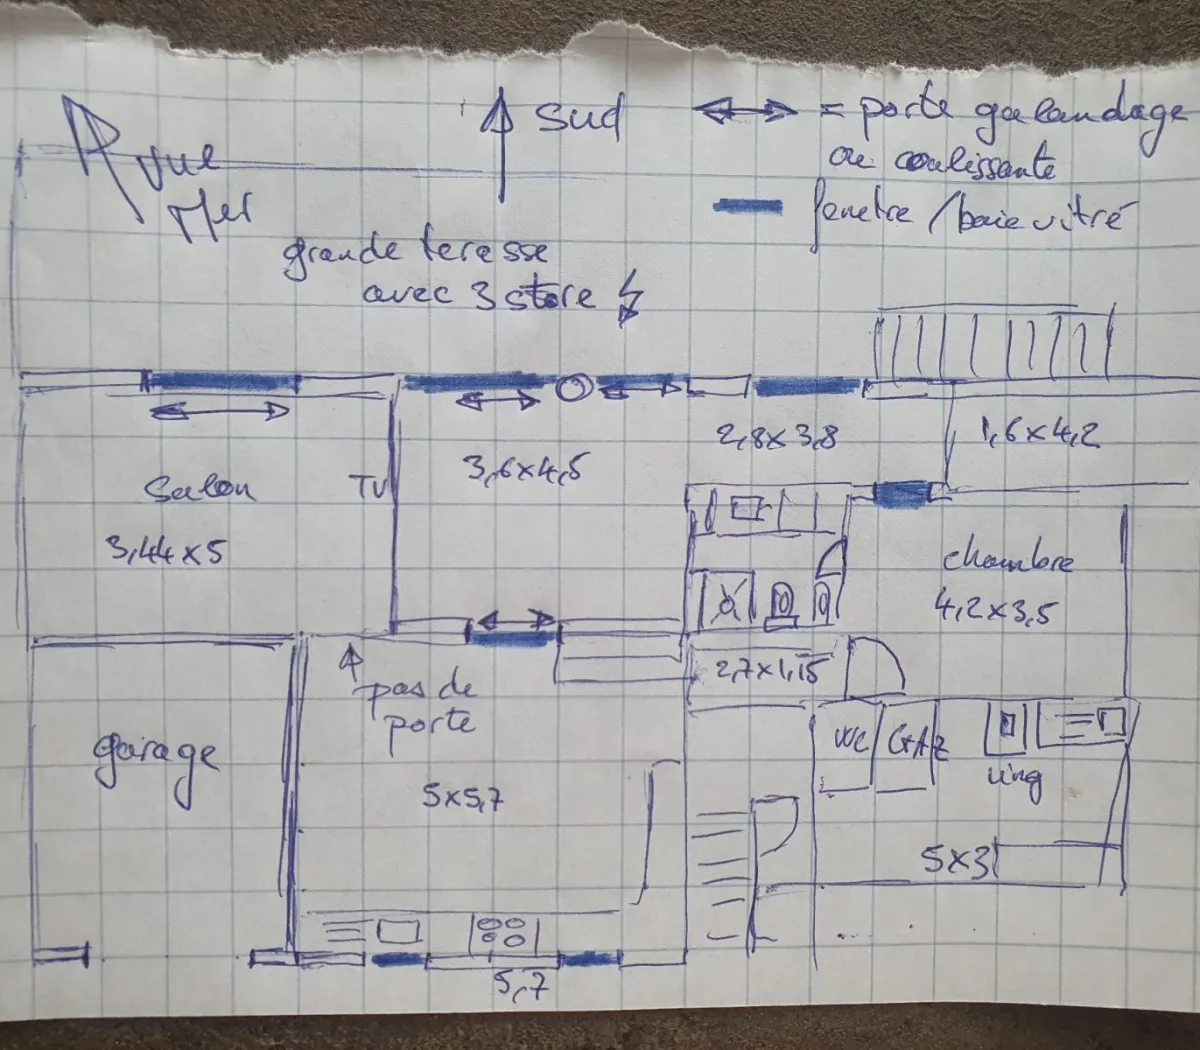 Sud
= porte galandage
ou coulissante
vue
Mer
fenetre / baie vitré
grande terasse
avec 3 store
2,8x3,8
1,6x4,2
3,6x4,5
Salon
TV
3,44x5
chambre
4,2x3,5
2,7x1,15
pas de
porte
garage
WC
GAZ
ling
5x5,7
5x3
5,7